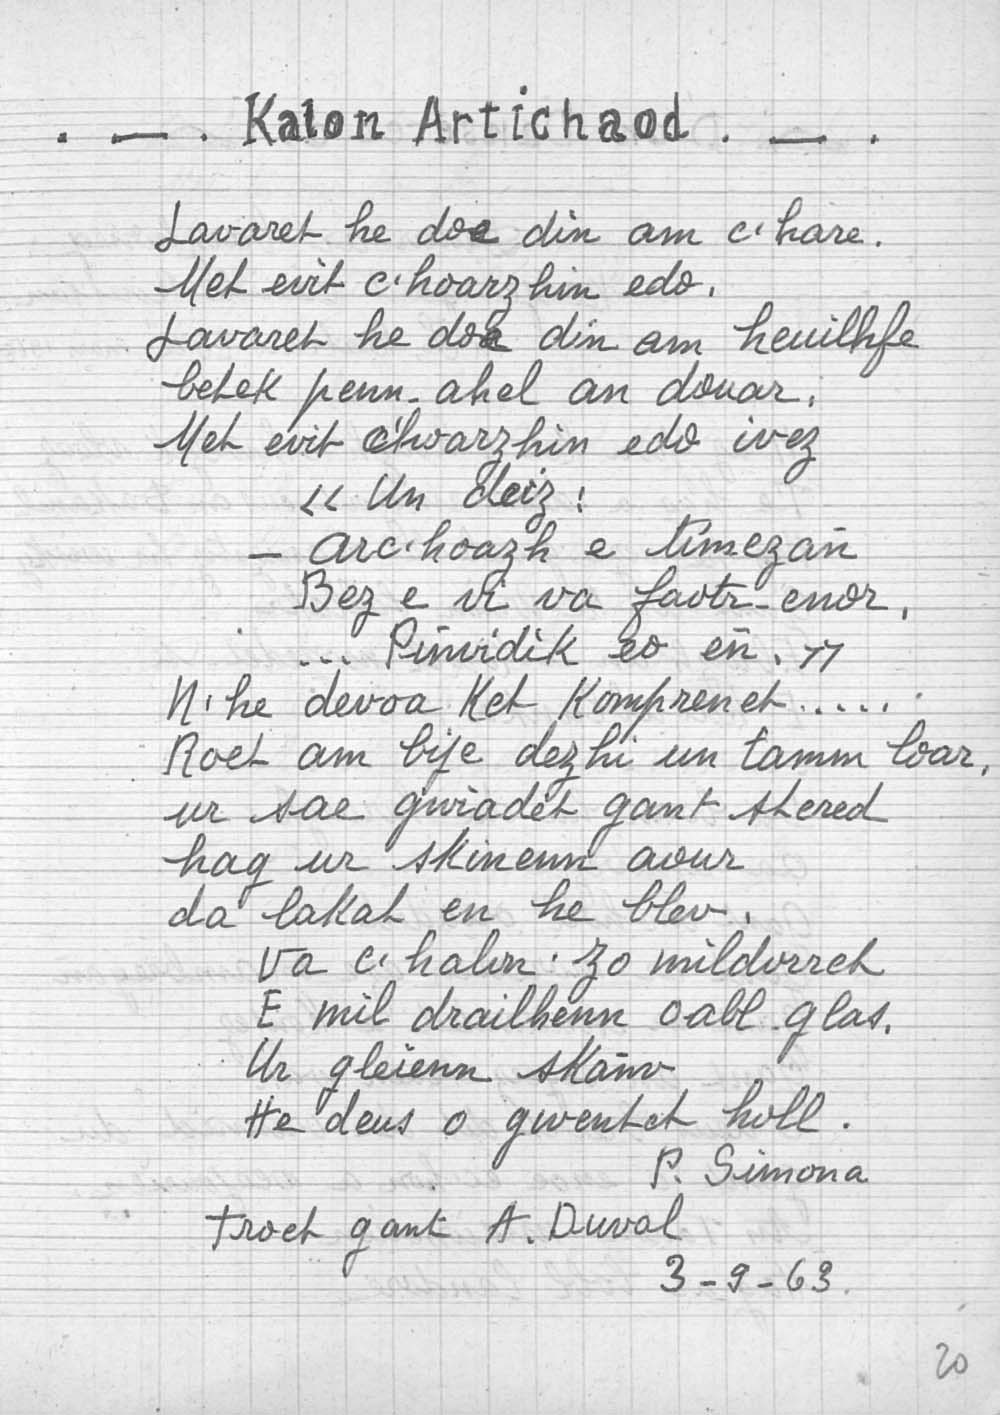 . — . Kalon Artichaod . — .
Lavaret he doa din am c'hare.
Met evit c'hoarzhin edo.
Lavaret he doa din am heuilhfe
betek penn-ahel an douar.
Met evit c'hoarzhin edo ivez
<< Un deiz :
— Arc'hoazh e timezañ
Bez e vi va faotr-enor,
... Pinvidik eo eñ. >>
N'he devoa ket komprenet.....
Roet am bije dezhi un tamm loar,
ur sae gwiadet gant stered
hag ur skinenn aour
da lakat en he blev.
Va c'halon zo mildorret
E mil drailhenn oabl-glas.
Ur gleienn skañv
He deus o gwentet holl.
P. Simona
Troet gant A. Duval
3-9-63.
20